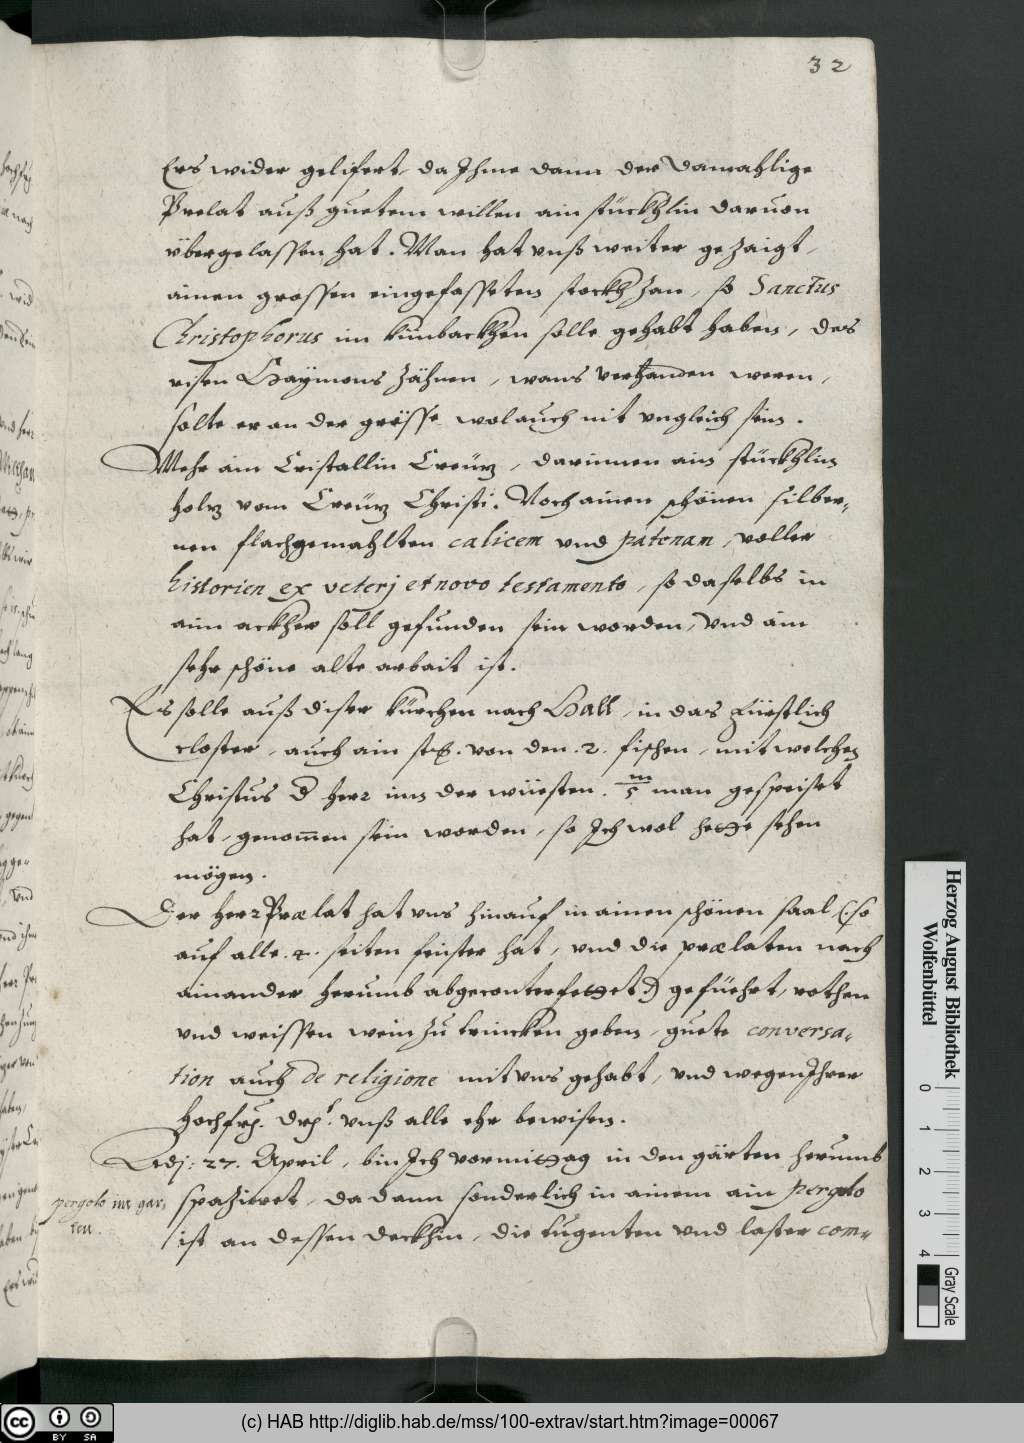 32
Ers wider gelifert, da Ihme dann der damahlige
Prelat auß guetem willen ain stückhlin daruon
übergelassen hat. Man hat vnß weiter gezaigt,
ainen grossen eingefassten stockh Zan, so Sanctus
Christophorus im kinbackhen solle gehabt haben, des
risen Haÿmons Zähnen, wans verhanden weren,
solte er an der grösse wol auch nit vngleich sein.
Mehr ain Cristallin Creütz, darinnen ain stückhlin
holtz vom Creütz Christi. Noch ainen schönen silber-
nen flachgemahlten calicem vnd patenam, voller
historien ex veterj et novo testamento, so daselbs in
aim ackher soll gefunden sein worden, vnd ain
sehr schöne alte arbait ist.
Es solle auß diser kürchen nach Hall, in das Fürstlich
closter, auch ain stk. von den .2. fischen, mit welchen
Christus d herr inn der wüesten . m/5 man gespeiset
hat, genom̄en sein worden, so Ich wol hette sehen
mögen.
Der Herr Prælat hat vns hinauf in ainen schönen saal (: so
auf alle .4. seiten fenster hat, vnd die prælaten nach
ainander herumb abgeconterfettet :) gefüehrt, rothen
vnd weissen wein zu trincken geben, guete conversa-
tion auch de religione mit vns gehabt, vnd wegen Ihrer
Hochfr. drt. vnß alle ehr bewisen.
Adj: 27. April, bin Ich vormittag in den gärten herumb
spaziert, da dann sonderlich in ainem ain pergolo
ist an dessen deckhin, die tugenten vnd laster com-
pergolo im gar-
ten.
Herzog August Bibliothek
Wolfenbüttel
0 1 2 3 4
Gray Scale
cc BY SA
(c) HAB http://diglib.hab.de/mss/100-extrav/start.htm?image=00067